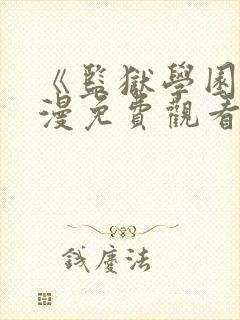 《監獄學園
漫免費觀看
錢慶法